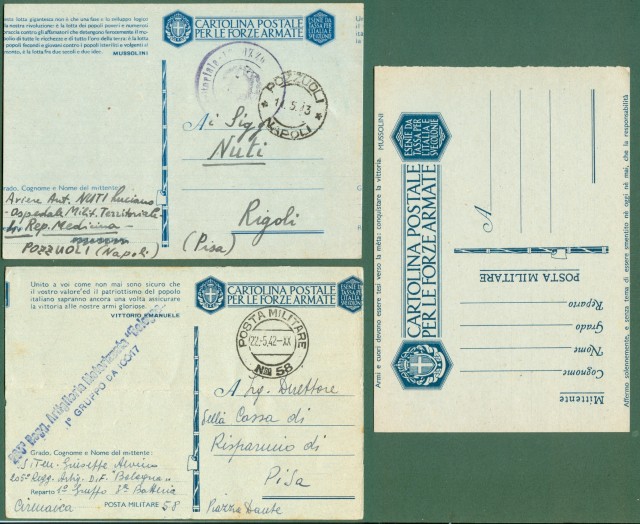 lotta gigantesca non è che una fase e lo sviluppo logico
la nostra rivoluzione: è la lotta dei popoli poveri e numerosi
braccia contro gli affamatori che detengono ferocemente il mo-
polio di tutte le ricchezze e di tutto l'oro della terra: è la lotta
popoli fecondi e giovani contro i popoli isteriliti e volgenti al
tramonto, è la lotta fra due secoli e due idee.
MUSSOLINI
CARTOLINA POSTALE
PER LE FORZE ARMATE
ESENTE DA
TASSA PER
L'ITALIA E
SUE COLONIE
POZZUOLI
NAPOLI
Ai Sigg.
Nuti
Rigoli
(Pisa)
Grado, Cognome e Nome del mittente
Aviere Aut. NUTI Luciano
Ospedale Milit. Territoriale
Rep. Medicina
POZZUOLI (Napoli)
Unito a voi come non mai sono sicuro che
il vostro valore ed il patriottismo del popolo
italiano sapranno ancora una volta assicurare
la vittoria alle nostre armi gloriose.
VITTORIO EMANUELE
CARTOLINA POSTALE
PER LE FORZE ARMATE
ESENTE DA
TASSA PER
L'ITALIA E
SUE COLONIE
POSTA MILITARE
22.5.42-XX
N. 58
205° Regg. Artiglieria Motorizzata "Bologna"
1° GRUPPO DA 100/17
A Ig. Direttore
della Cassa di
Risparmio di
Pisa
Piazza Dante
Grado, Cognome e Nome del mittente:
S.Ten. Giuseppe
205° Regg. Artig. D.F. "Bologna"
Reparto 1° Gruppo 3ª Batteria
Cirenaica POSTA MILITARE 58
CARTOLINA POSTALE
PER LE FORZE ARMATE
ESENTE DA
TASSA PER
L'ITALIA E
SUE COLONIE
Armi e cuori devono essere tesi verso la mèta: conquistare la vittoria. MUSSOLINI
A
POSTA MILITARE
Reparto
Grado
Nome
Cognome
Mittente
Affermo solennemente, e senza tema di essere smentito nè ogni nè mai, che la responsabilità